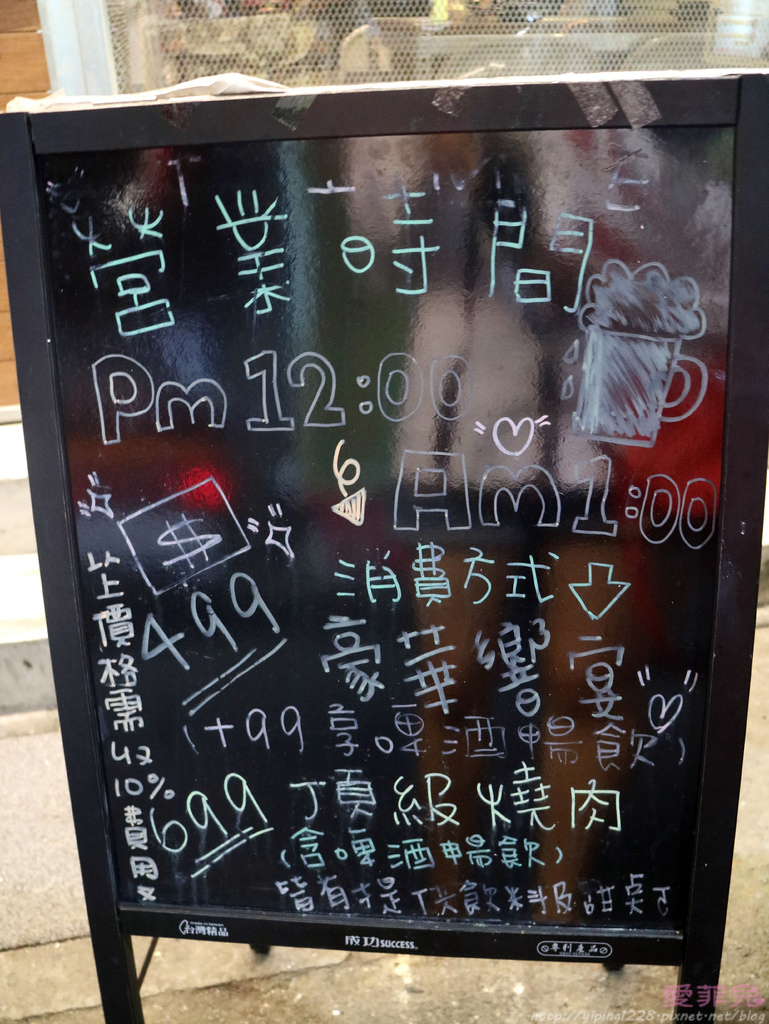 營業時間
Pm 12:00
Am 1:00
$
消費方式
499
豪華響宴
(+99 享啤酒暢飲)
699 頂級燒肉
(含啤酒暢飲)
皆有提供飲料及甜點
以上價格需收10%費用
台灣精品
成功SUCCESS
專利產品
愛菲兒
http://yiping1228.pixnet.net/blog